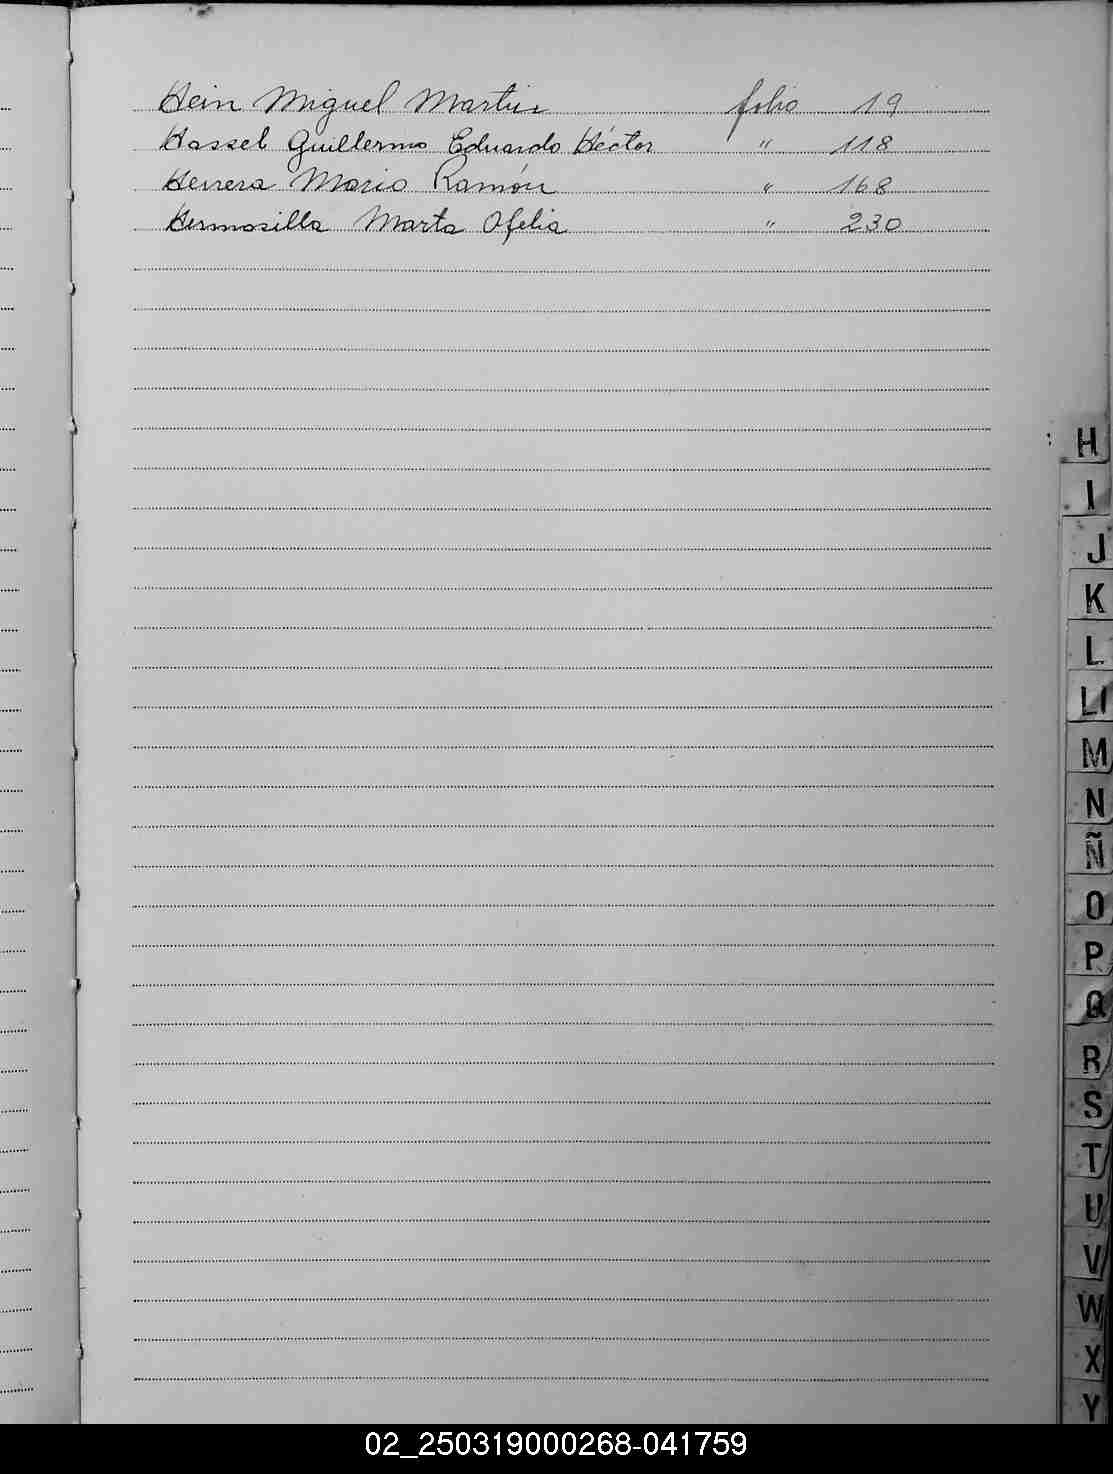 Hein Miguel Martin folio 19
Hassel Guillermo Eduardo Héctor " 118
Herrera Mario Ramón " 168
Hermosilla Marta Ofelia " 230
H
I
J
K
L
Ll
M
N
Ñ
O
P
Q
R
S
T
U
V
W
X
Y
02_250319000268-041759